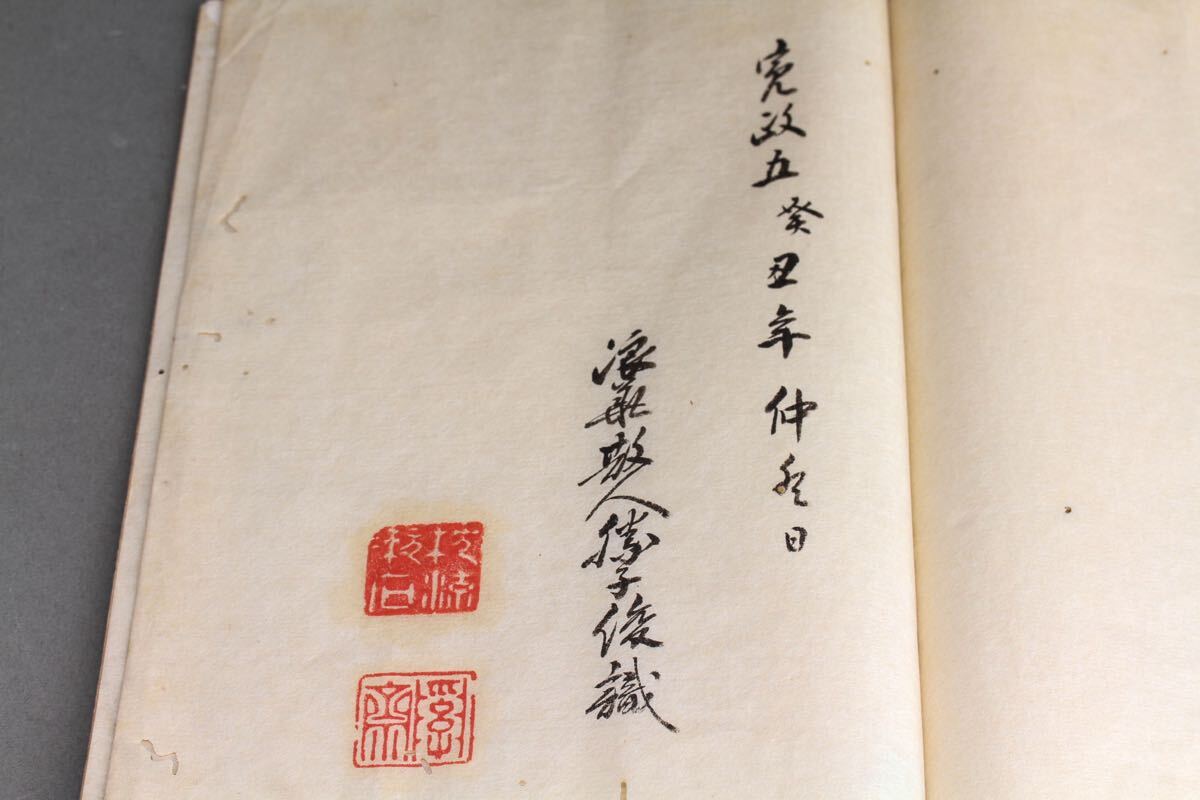 寛政五癸丑年仲日
浪華散人勝子俊識